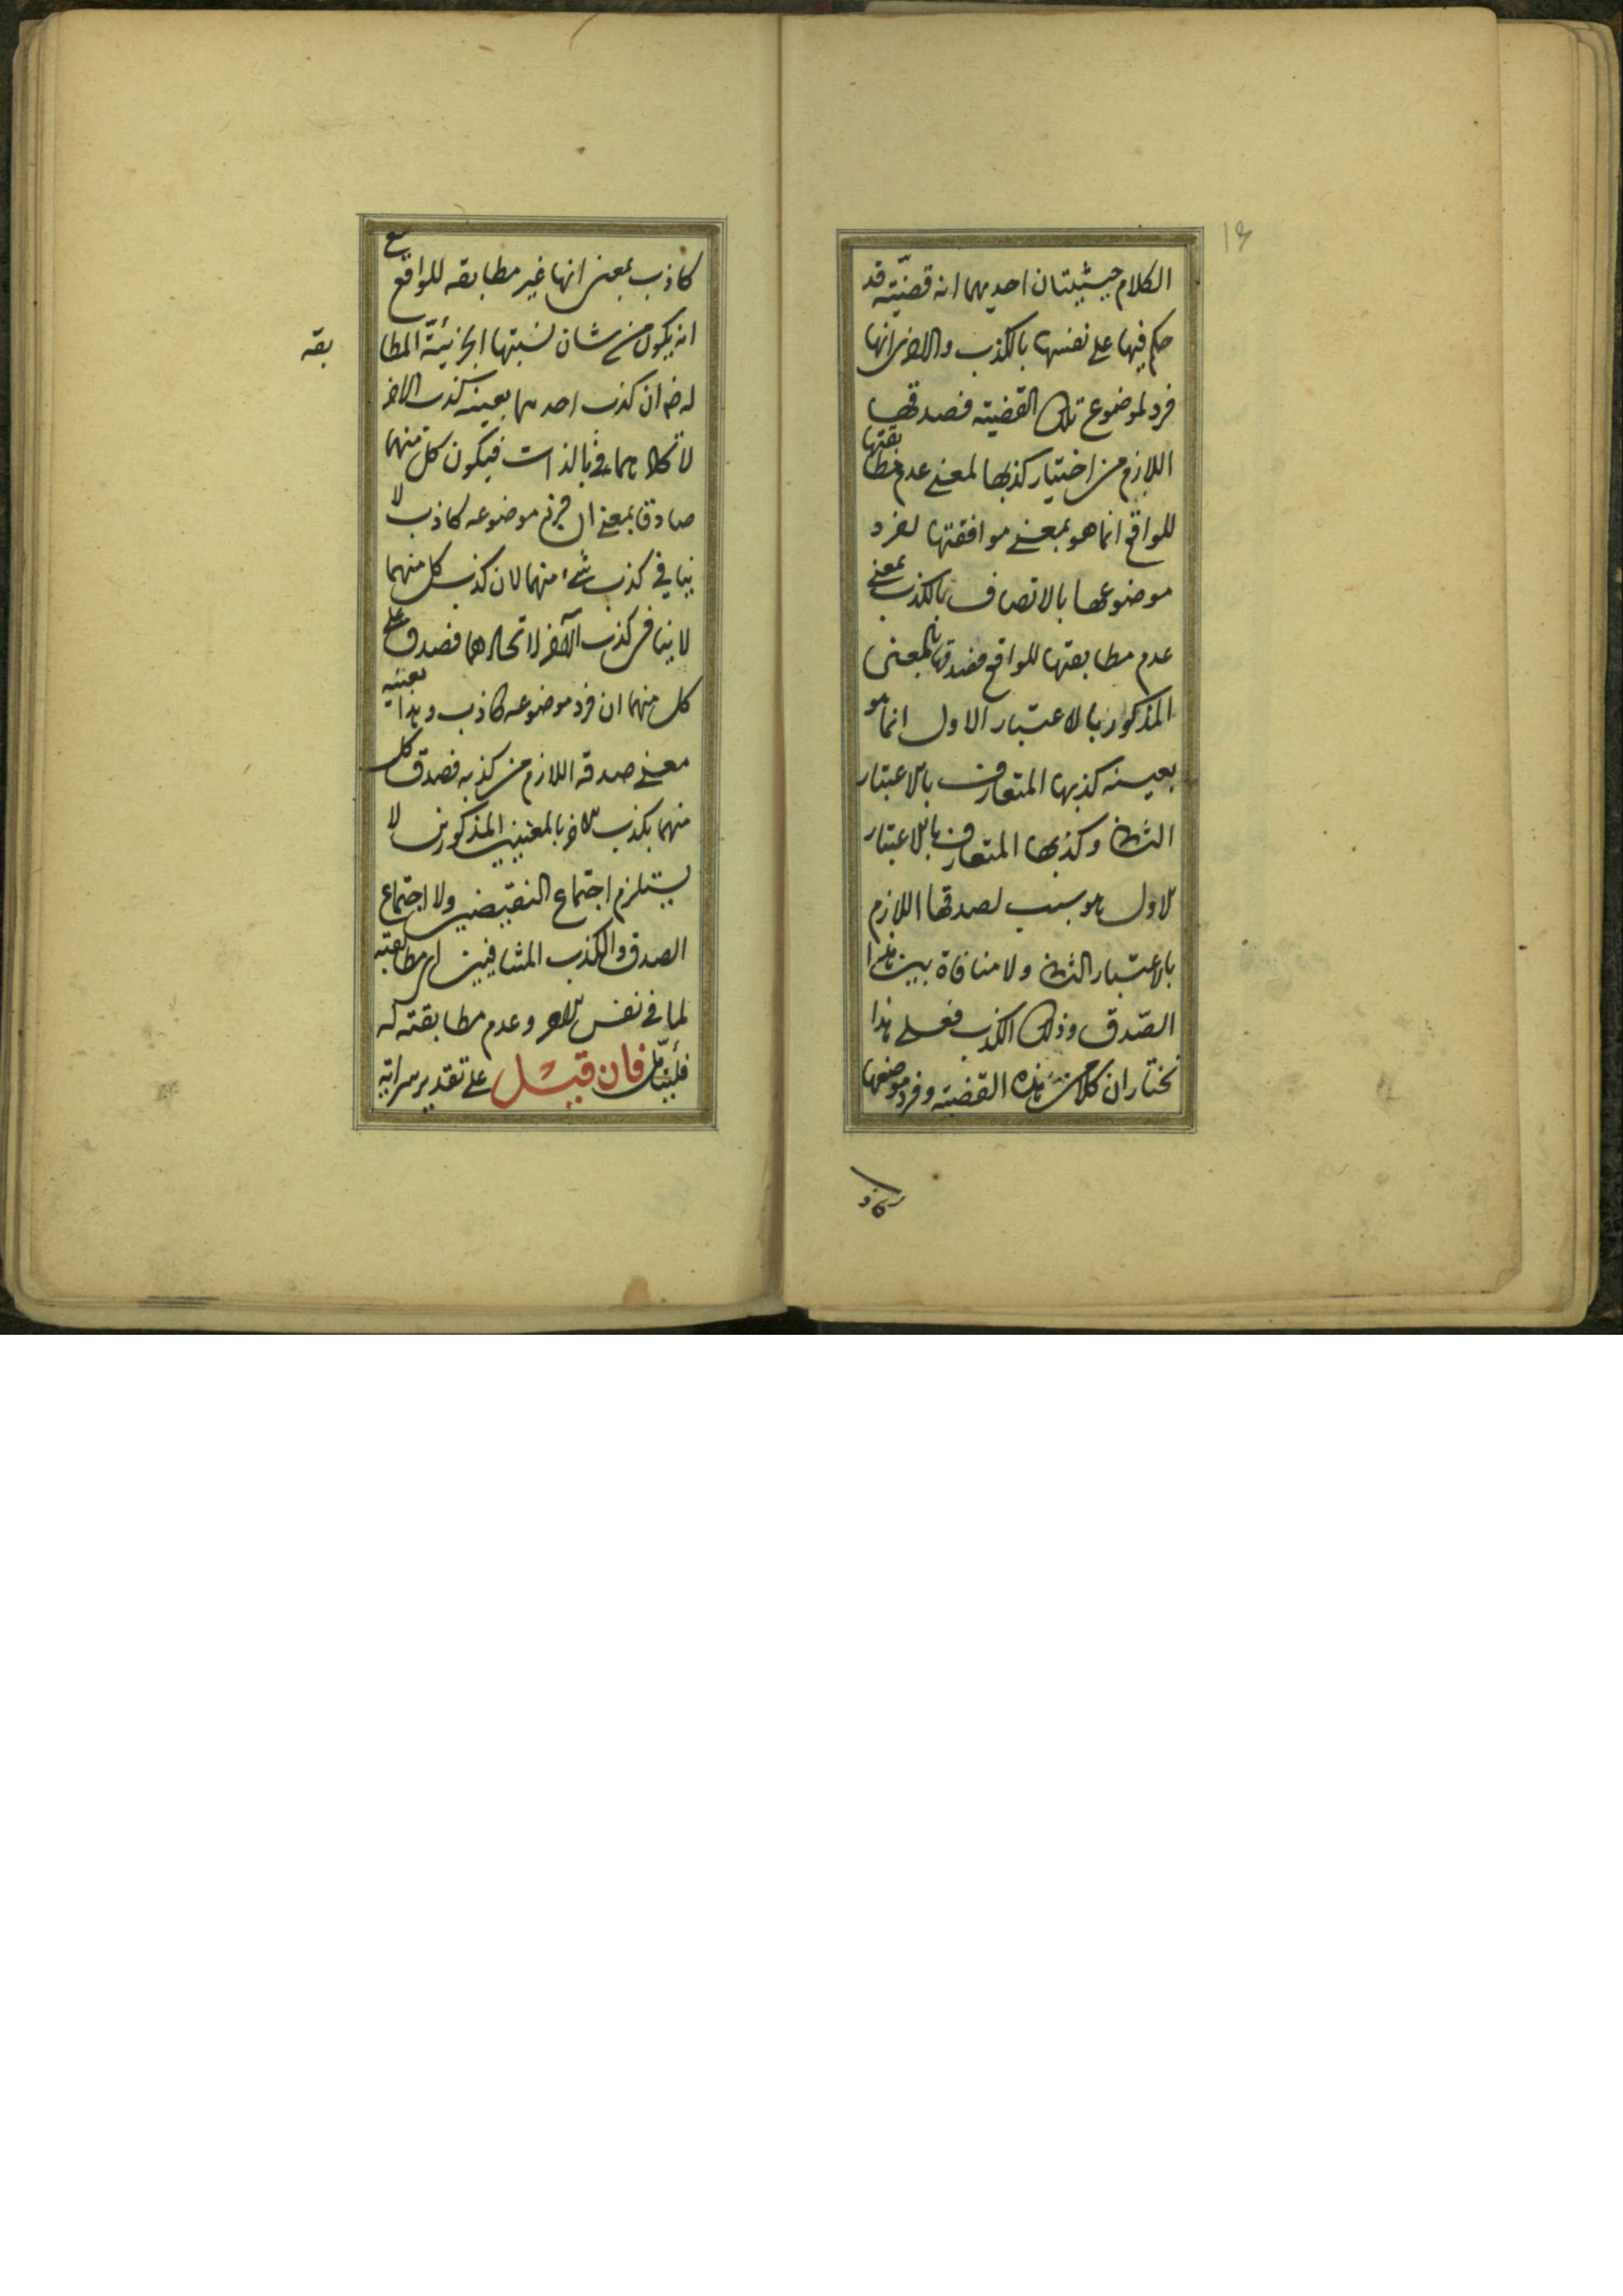 ١٣
الكلام حيثيتان احديهما انه قضيّته قد
حكم فيها على نفسها بالكذب والاخرى انها
فرد لموضوع تلك القضيته فصدقها
اللازم من اختيار كذبها لمعنى عدم مطابقتها
للواقع انما هو بمعنى موافقتها لفرد
موضوعها بالاتصاف بالكذب بمعنى
عدم مطابعتها للواقع فصدقها بالمعنى
المذكور بالاعتبار الاول انما هو
بعينه كذبها المتعارف بالاعتبار
الثانى وكذبها المتعارف بالاعتبار
الاول هو سبب لصدقها اللازم
بالاعتبار الثانى ولا منافاة بين هذا
الصّدق وذلك الكذب فعلى هذا
نختار ان كلا من هذه القضيته وفرد موضوعها
كاذب بمعنى انها غير مطابقه للواقع مع
انه يكون من شان نسبتها الجزئيّة المطا بقه
له ضم ان كذب احدهما بعينه كذب الاخر
لاتحادهما فى بالذات فيكون كل منهما
صادق بمعنى ان فرد موضوعه كاذب لا
ينافي كذب شئ منهما لان كذب كل منهما
لا ينافى كذب الآخر لاتحادهما فصدق على
كل منهما ان فرد موضوعه كاذب وهذا بعينه
معنى صدقه اللازم من كذبه فصدق كل
منهما بكذب الاخر بالمعنيين المذكورين لا
يستلزم اجتماع النقيضين ولا اجتماع
الصدق والكذب المتنافيين اى مطابقته
لما في نفس الامر وعدم مطابقته له
فليتأمّل فان قيل على تقدير سراية